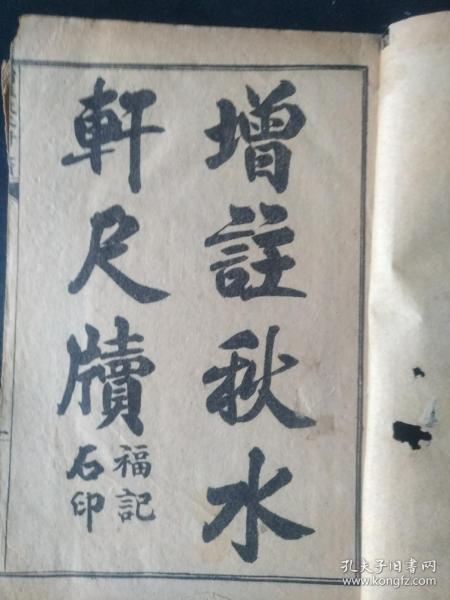 增註秋水
軒尺牘
福記
石印
孔夫子旧书网
www.kongfz.com